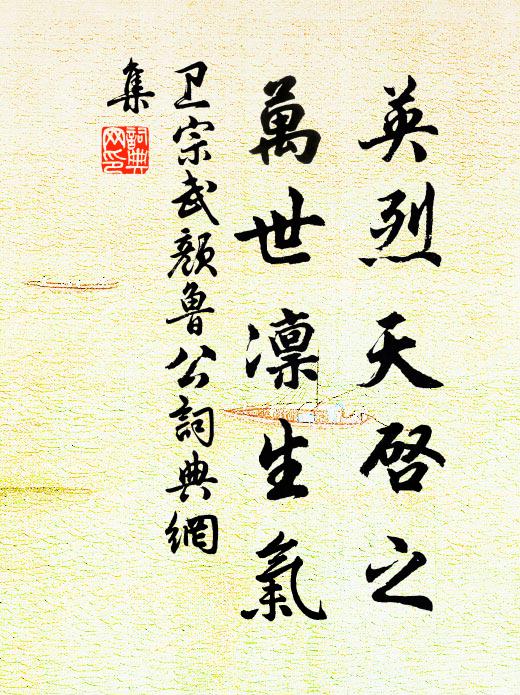 英烈天啓之
萬世凛生氣
卫宗武顔魯公詞典網
集
詞典
网印